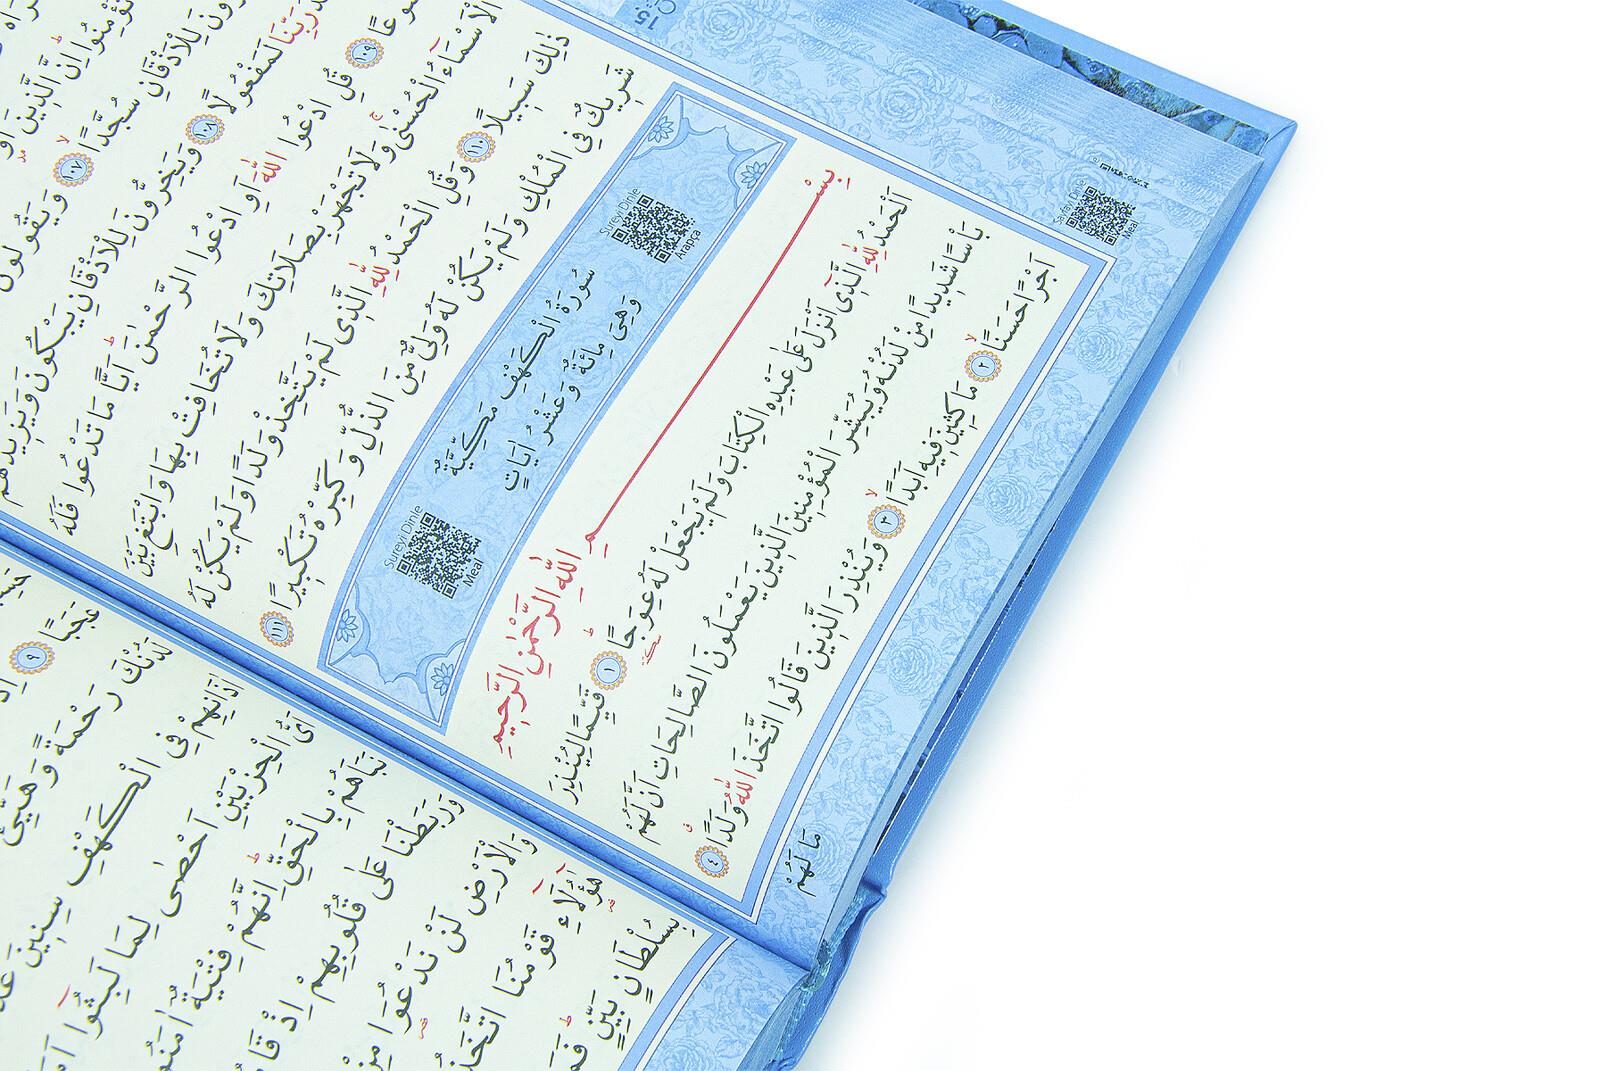 لِلْاَذْقَانِ سُجَّدًا ﴿١٠٧﴾ وَيَقُولُونَ
رَبِّنَا لَمَفْعُولًا ﴿١٠٨﴾ وَيَخِرُّونَ لِلْاَذْقَانِ يَبْكُونَ وَيَزِيدُهُمْ
﴿١٠٩﴾ قُلِ ادْعُوا اللّٰهَ اَوِ ادْعُوا الرَّحْمٰنَ اَيًّا مَا تَدْعُوا فَلَهُ
الْاَسْمَٓاءُ الْحُسْنٰى وَلَا تَجْهَرْ بِصَلَاتِكَ وَلَا تُخَافِتْ بِهَا وَابْتَغِ بَيْنَ
ذٰلِكَ سَبِيلًا ﴿١١٠﴾ وَقُلِ الْحَمْدُ لِلّٰهِ الَّذِى لَمْ يَتَّخِذْ وَلَدًا وَلَمْ يَكُنْ لَهُ
شَرِيكٌ فِى الْمُلْكِ وَلَمْ يَكُنْ لَهُ وَلِىٌّ مِنَ الذُّلِّ وَكَبِّرْهُ تَكْبِيرًا ﴿١١١﴾
Sureyi Dinle
Arapça
سُورَةُ الْكَهْفِ مَكِّيَّةٌ
وَهِىَ مِائَةٌ وَعَشْرُ اٰيَاتٍ
Sureyi Dinle
Meal
بِسْمِ اللّٰهِ الرَّحْمٰنِ الرَّحِيمِ
اَلْحَمْدُ لِلّٰهِ الَّذِٓى اَنْزَلَ عَلٰى عَبْدِهِ الْكِتَابَ وَلَمْ يَجْعَلْ لَهُ عِوَجًا ﴿١﴾ قَيِّمًا لِيُنْذِرَ
بَاْسًا شَدِيدًا مِنْ لَدُنْهُ وَيُبَشِّرَ الْمُؤْمِنِينَ الَّذِينَ يَعْمَلُونَ الصَّالِحَاتِ اَنَّ لَهُمْ
اَجْرًا حَسَنًا ﴿٢﴾ مَاكِثِينَ فِيهِ اَبَدًا ﴿٣﴾ وَيُنْذِرَ الَّذِينَ قَالُوا اتَّخَذَ اللّٰهُ وَلَدًا ﴿٤﴾
مَا لَهُمْ
Sayfayı Dinle
Meal
عَجَبًا ﴿٩﴾
لَدُنْكَ رَحْمَةً وَهَيِّئْ
اٰذَانِهِمْ فِى الْكَهْفِ سِنِينَ
اَىُّ الْحِزْبَيْنِ اَحْصٰى لِمَا لَبِثُٓوا
نَبَاَهُمْ بِالْحَقِّ اِنَّهُمْ فِتْيَةٌ
وَرَبَطْنَا عَلٰى قُلُوبِهِمْ اِذْ
وَالْاَرْضِ لَنْ نَدْعُوَا مِنْ
هٰٓؤُلَٓاءِ قَوْمُنَا
بِسُلْطَانٍ بَيِّنٍ